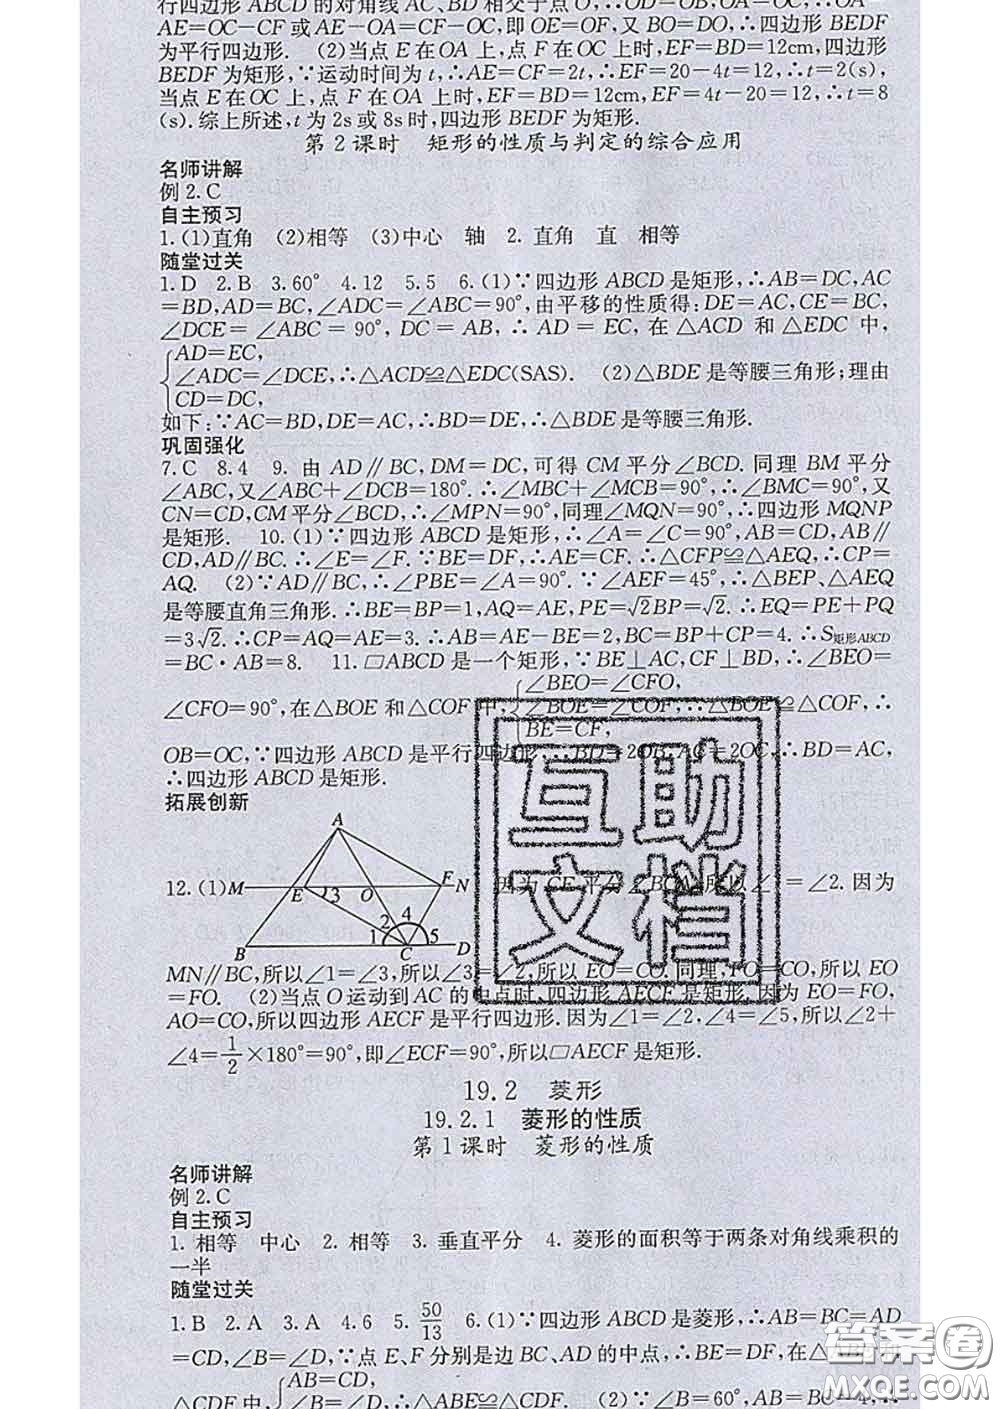 行四边形 ABCD 的对角线 AC、BD 相交于点 O,∴OD=OB,OA=OC,∴OA-
AE=OC-CF 或 AE-OA=CF-OC,即 OE=OF,又 BO=DO,∴四边形 BEDF
为平行四边形. (2)当点 E 在 OA 上,点 F 在 OC 上时,EF=BD=12cm,四边形
BEDF 为矩形,∵运动时间为 t,∴AE=CF=2t,∴EF=20-4t=12,∴t=2(s),
当点 E 在 OC 上,点 F 在 OA 上时,EF=BD=12cm,EF=4t-20=12,∴t=8
(s).综上所述,t 为 2s 或 8s 时,四边形 BEDF 为矩形.
第 2 课时 矩形的性质与判定的综合应用
名师讲解
例 2.C
自主预习
1.(1)直角 (2)相等 (3)中心 轴 2. 直角 直 相等
随堂过关
1.D 2.B 3.60° 4.12 5.5 6.(1)∵四边形 ABCD 是矩形,∴AB=DC,AC
=BD,AD=BC,∠ADC=∠ABC=90°,由平移的性质得:DE=AC,CE=BC,
∠DCE=∠ABC=90°,DC=AB,∴AD=EC,在△ACD 和△EDC 中,
AD=EC,
∠ADC=∠DCE,∴△ACD≌△EDC(SAS). (2)△BDE 是等腰三角形;理由
CD=DC,
如下:∵AC=BD,DE=AC,∴BD=DE,∴△BDE 是等腰三角形.
巩固强化
7.C 8.4 9. 由 AD∥BC,DM=DC,可得 CM 平分∠BCD. 同理 BM 平分
∠ABC,又∠ABC+∠DCB=180°.∴∠MBC+∠MCB=90°,∴∠BMC=90°,又
CN=CD,CM 平分∠BCD,∴∠MPN=90°,同理∠MQN=90°,∴四边形 MQNP
是矩形. 10.(1)∵四边形 ABCD 是矩形,∴∠A=∠C=90°,AB=CD,AB∥
CD,AD∥BC.∴∠E=∠F.∵BE=DF,∴AE=CF.∴△CFP≌△AEQ,∴CP=
AQ. (2)∵AD∥BC,∴∠PBE=∠A=90°.∵∠AEF=45°,∴△BEP、△AEQ
是等腰直角三角形.∴BE=BP=1,AQ=AE,PE=√2BP=√2.∴EQ=PE+PQ
=3√2.∴CP=AQ=AE=3.∴AB=AE-BE=2,BC=BP+CP=4.∴S矩形ABCD
=BC·AB=8. 11.▱ABCD 是一个矩形,∵BE⊥AC,CF⊥BD,∴∠BEO=
∠BEO=∠CFO,
∠CFO=90°,在△BOE 和△COF 中,∠BOE=∠COF,∴△BOE≌△COF,∴
BE=CF,
OB=OC,∵四边形 ABCD 是平行四边形,∴BD=2OB,AC=2OC,∴BD=AC,
∴四边形 ABCD 是矩形.
拓展创新
A
12.(1)M E 3 O F N 因为 CE 平分∠BCA,所以∠1=∠2.因为
B 1 2 4 5 C D
MN∥BC,所以∠1=∠3,所以∠3=∠2,所以 EO=CO.同理,FO=CO,所以 EO
=FO. (2)当点 O 运动到 AC 的中点时,四边形 AECF 是矩形.因为 EO=FO,
AO=CO,所以四边形 AECF 是平行四边形.因为∠1=∠2,∠4=∠5,所以∠2+
∠4=1/2×180°=90°,即∠ECF=90°,所以▱AECF 是矩形.
19.2 菱形
19.2.1 菱形的性质
第 1 课时 菱形的性质
名师讲解
例 2.C
自主预习
1. 相等 中心 2. 相等 3. 垂直平分 4. 菱形的面积等于两条对角线乘积的
一半
随堂过关
1.B 2.A 3.A 4.6 5.50/13 6.(1)∵四边形 ABCD 是菱形,∴AB=BC=AD
=CD,∠B=∠D,∵点 E、F 分别是边 BC、AD 的中点,∴BE=DF,在△ABE
AB=CD,
△CDF 中, ∠B=∠D,∴△ABE≌△CDF. (2)∵∠B=60°,AB=BC=4,
互助
文档
答案圈
MXQE.COM